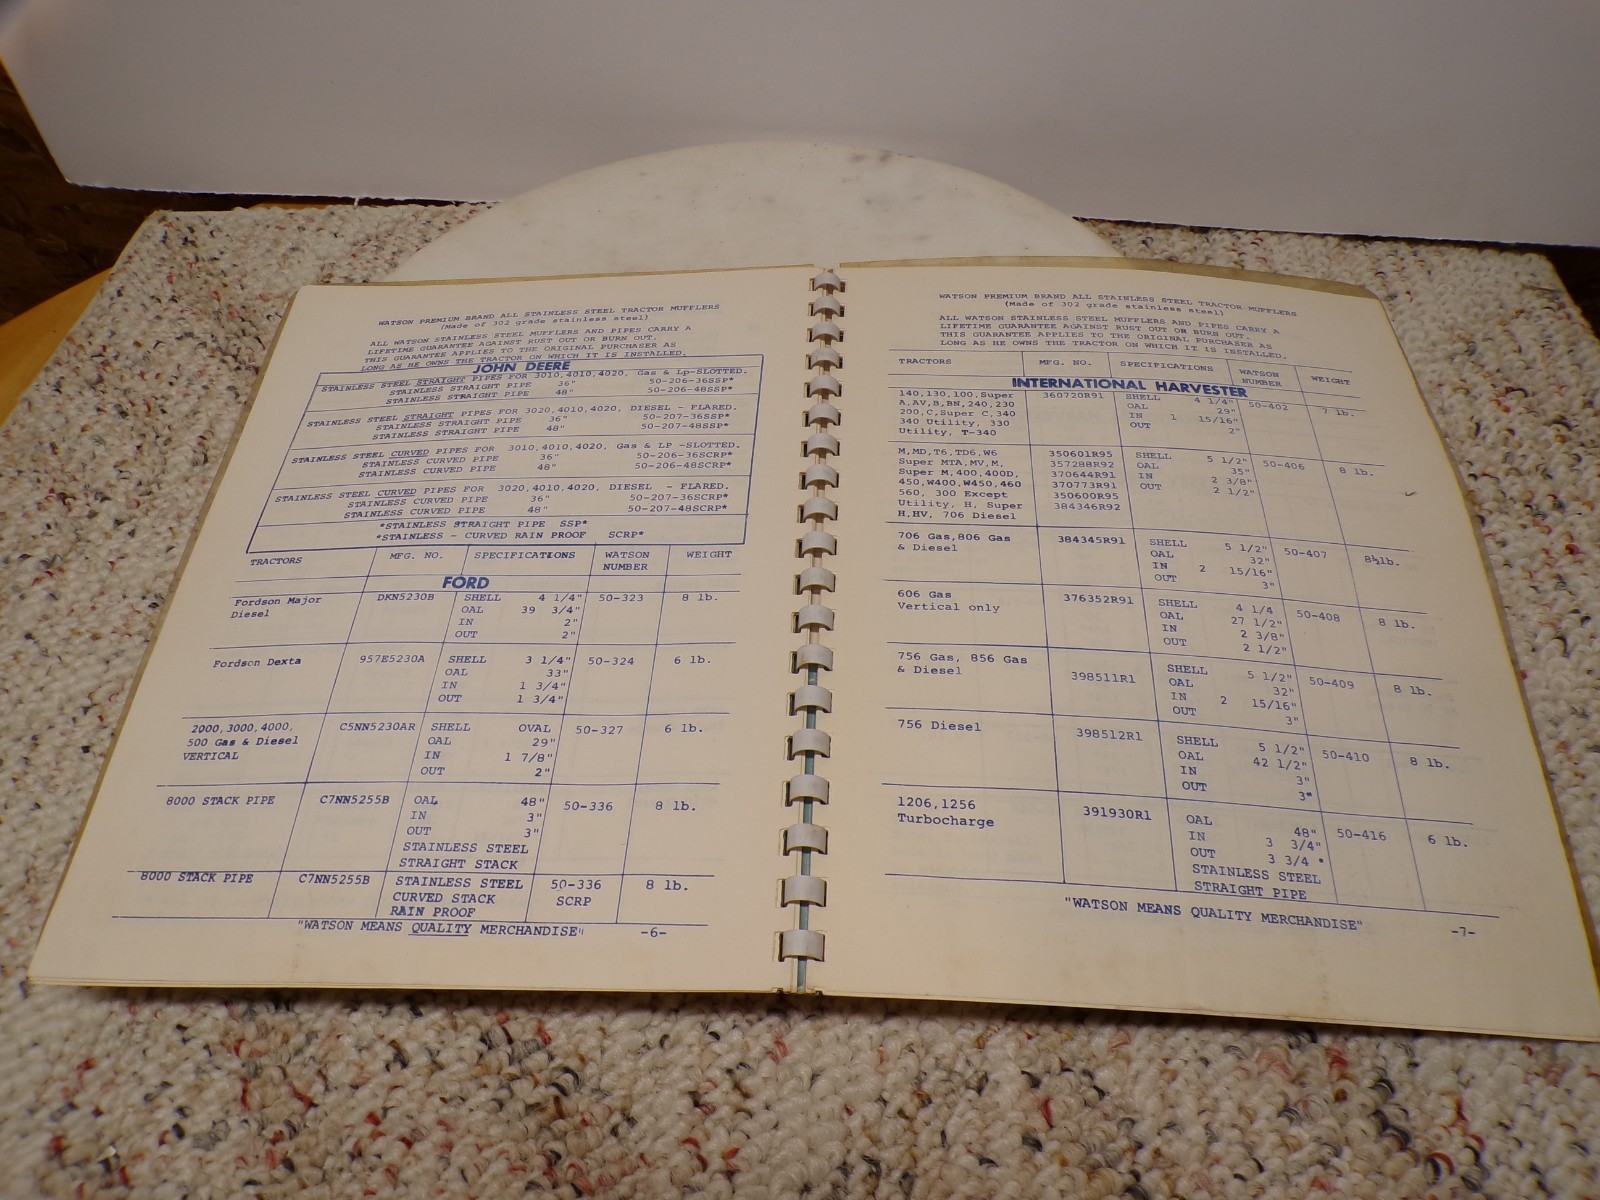 WATSON PREMIUM BRAND ALL STAINLESS STEEL TRACTOR MUFFLERS
(Made of 302 grade stainless steel)
ALL WATSON STAINLESS STEEL MUFFLERS AND PIPES CARRY A
LIFETIME GUARANTEE AGAINST RUST OUT OR BURN OUT.
THIS GUARANTEE APPLIES TO THE ORIGINAL PURCHASER AS
LONG AS HE OWNS THE TRACTOR ON WHICH IT IS INSTALLED.
JOHN DEERE
STAINLESS STEEL STRAIGHT PIPES FOR 3010,4010,4020, Gas & Lp-SLOTTED.
STAINLESS STRAIGHT PIPE 36" 50-206-36SSP*
STAINLESS STRAIGHT PIPE 48" 50-206-48SSP*
STAINLESS STEEL STRAIGHT PIPES FOR 3020,4010,4020, DIESEL - FLARED.
STAINLESS STRAIGHT PIPE 36" 50-207-36SSP*
STAINLESS STRAIGHT PIPE 48" 50-207-48SSP*
STAINLESS STEEL CURVED PIPES FOR 3010,4010,4020, Gas & LP -SLOTTED.
STAINLESS CURVED PIPE 36" 50-206-36SCRP*
STAINLESS CURVED PIPE 48" 50-206-48SCRP*
STAINLESS STEEL CURVED PIPES FOR 3020,4010,4020, DIESEL - FLARED.
STAINLESS CURVED PIPE 36" 50-207-36SCRP*
STAINLESS CURVED PIPE 48" 50-207-48SCRP*
*STAINLESS STRAIGHT PIPE SSP*
*STAINLESS - CURVED RAIN PROOF SCRP*
TRACTORS MFG. NO. SPECIFICATIONS WATSON NUMBER WEIGHT
FORD
Fordson Major DKN5230B SHELL 4 1/4" 50-323 8 lb.
Diesel OAL 39 3/4"
IN 2"
OUT 2"
Fordson Dexta 957E5230A SHELL 3 1/4" 50-324 6 lb.
OAL 33"
IN 1 3/4"
OUT 1 3/4"
2000,3000,4000, C5NN5230AR SHELL OVAL 50-327 6 lb.
500 Gas & Diesel OAL 29"
VERTICAL IN 1 7/8"
OUT 2"
8000 STACK PIPE C7NN5255B OAL 48" 50-336 8 lb.
IN 3"
OUT 3"
STAINLESS STEEL
STRAIGHT STACK
8000 STACK PIPE C7NN5255B STAINLESS STEEL 50-336 8 lb.
CURVED STACK SCRP
RAIN PROOF
"WATSON MEANS QUALITY MERCHANDISE" -6-
WATSON PREMIUM BRAND ALL STAINLESS STEEL TRACTOR MUFFLERS
(Made of 302 grade stainless steel)
ALL WATSON STAINLESS STEEL MUFFLERS AND PIPES CARRY A
LIFETIME GUARANTEE AGAINST RUST OUT OR BURN OUT.
THIS GUARANTEE APPLIES TO THE ORIGINAL PURCHASER AS
LONG AS HE OWNS THE TRACTOR ON WHICH IT IS INSTALLED.
TRACTORS MFG. NO. SPECIFICATIONS WATSON NUMBER WEIGHT
INTERNATIONAL HARVESTER
140,130,100,Super 360720R91 SHELL 4 1/4" 50-402 7 lb.
A,AV,B,BN,240,230 OAL 29"
200,C,Super C,340 IN 1 15/16"
340 Utility, 330 OUT 2"
Utility, T-340
M,MD,T6,TD6,W6 350601R95 SHELL 5 1/2" 50-406 8 lb.
Super MTA,MV,M, 357288R92 OAL 35"
Super M,400,400D, 370644R91 IN 2 3/8"
450,W400,W450,460 370773R91 OUT 2 1/2"
560, 300 Except 350600R95
Utility, H, Super 384346R92
H,HV, 706 Diesel
706 Gas,806 Gas 384345R91 SHELL 5 1/2" 50-407 8½lb.
& Diesel OAL 32"
IN 2 15/16"
OUT 3"
606 Gas 376352R91 SHELL 4 1/4 50-408 8 lb.
Vertical only OAL 27 1/2"
IN 2 3/8"
OUT 2 1/2"
756 Gas, 856 Gas 398511R1 SHELL 5 1/2" 50-409 8 lb.
& Diesel OAL 32"
IN 2 15/16"
OUT 3"
756 Diesel 398512R1 SHELL 5 1/2" 50-410 8 lb.
OAL 42 1/2"
IN 3"
OUT 3"
1206,1256 391930R1 OAL 48" 50-416 6 lb.
Turbocharge IN 3 3/4"
OUT 3 3/4 "
STAINLESS STEEL
STRAIGHT PIPE
"WATSON MEANS QUALITY MERCHANDISE" -7-